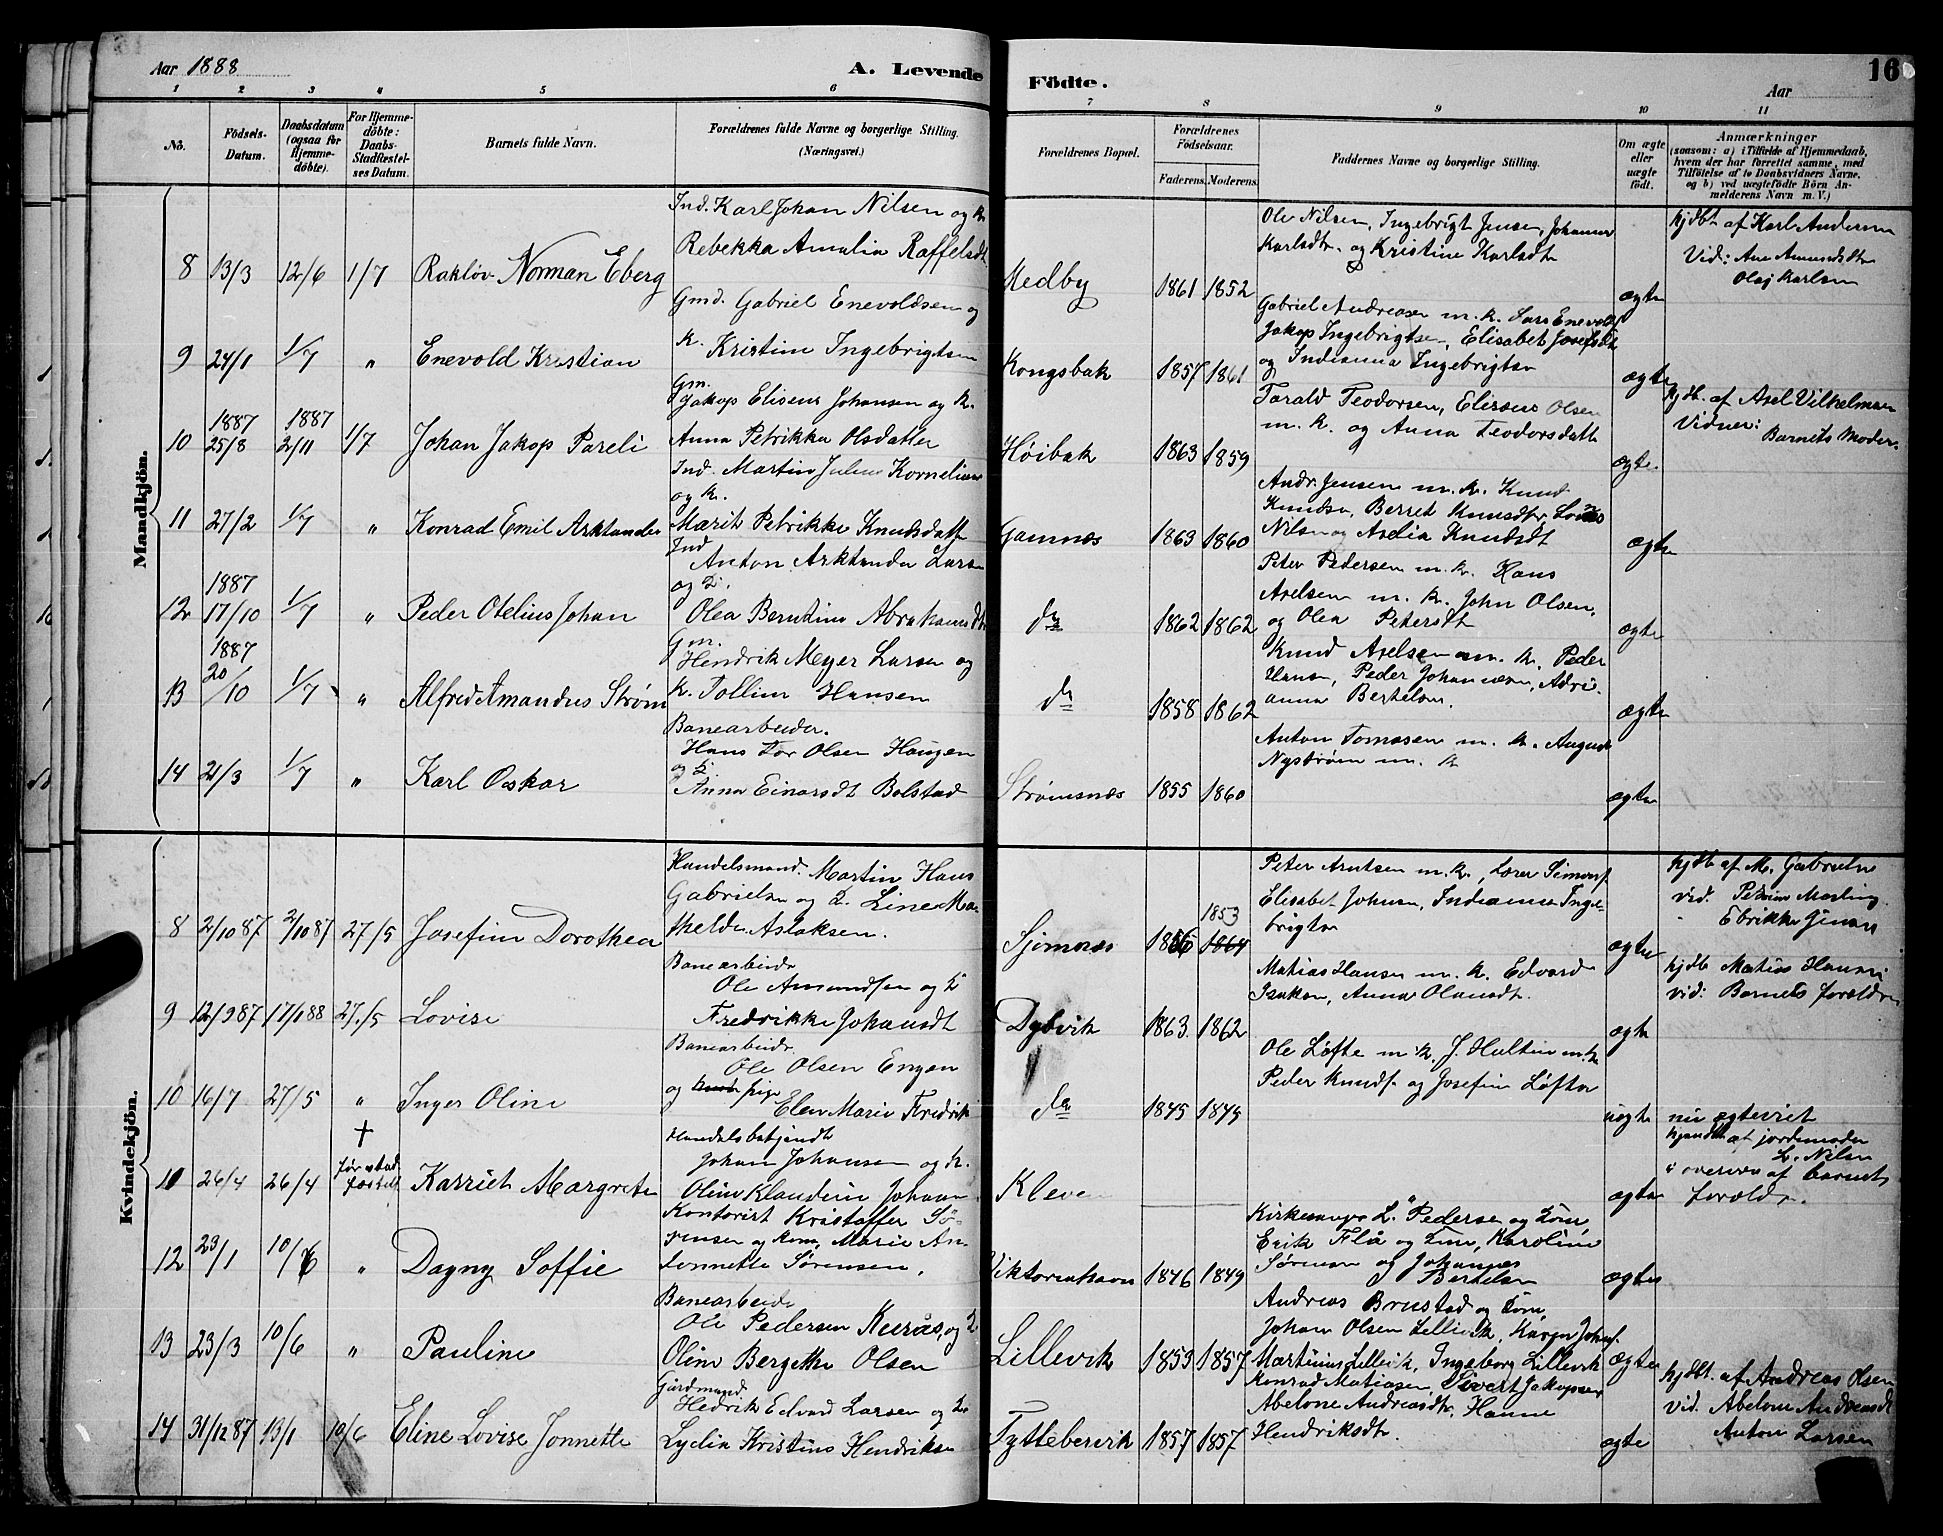 Aar 1888
A. Levende Födte.
Aar
16
1 2 3 4 5 6 7 8 9 10 11
No.
Födsels-Datum.
Daabsdatum (ogsaa for Hjemme-döbte).
For Hjemme-döbte: Daabs-Stadfæstel-ses Datum.
Barnets fulde Navn.
Forældrenes fulde Navne og borgerlige Stilling.
(Næringsvei.)
Forældrenes Bopæl.
Forældrenes Födselsaar.
Faderens. Moderens.
Faddernes Navne og borgerlige Stilling.
Om ægte eller uægte födt.
Anmærkninger
(saasom: a) i Tilfælde af Hjemmedaab,
hvem der har forrettet samme, med
Tilföielse af to Daabsvidners Navne,
og b) ved uægtefödte Börn An-
melderens Navn m. V.)
Mandkjön.
8 13/3 12/6 1/7 Norman Eberg
Ind. Karl Johan Nilsen og K.
Rebekka Amalia Raffelsdt
Medby 1861 1852
Ole Nilsen, Ingebrigt Jensen, Johanna
Karlsdtr. og Kristine Karlsdt
ægte
hjdbt af Karl Andersen
Vid: Ane Amundsdtr
Olaj Karlsen
9 24/1 1/7 " Enevold Kristian
Gmd. Gabriel Enevoldsen og
K. Kristine Ingebrigtsen
Kongsbak 1857 1861
Gabriel Andreasen m. K.
Jakop Ingebrigtsen, Elisabet Josefsdt
og Indianna Ingebrigtsn
ægte
10 1887 25/8 1887 2/11 1/7 Johan Jakop Pareli
Gm. Jakop Eliseus Johansen og K.
Anna Petrikka Olsdatter
Høibak 1863 1859
Tarald Teodorsen, Eliseus Olsen
m. K. og Anna Teodorsdatt
ægte
hjdt. af Axel Vilhelmsen
Vidner:
Barnets Moder.
11 27/2 1/7 " Konrad Emil Arktander
Ind. Martin Julius Kornelius
og K.
Marit Petrikke Knudsdatt
Gamnæs 1863 1860
Andr. Jensen m. K. Knud
Knudsn, Berret Knudsdtr
Nilsen og Axelia Knudsdt
ægte
12 1887 17/10 1/7 " Peder Otelius Johan
Ind Anton Arktander Larsen
og K.
Olea Berntine Abrahamsdt
do 1862 1862
Peter Pedersen m. K. Hans
Axelsen m. K. John Olsen,
og Olea Petersdt
ægte
13 1887 20/10 1/7 " Alfred Amandus Strøm
Gm. Hendrik Meyer Larsen og
K. Tolline Hansen
do 1858 1862
Knud Axelsen m. K. Peder
Hansn, Peder Johannesen, Adri-
anna Bertelsen.
ægte
14 21/3 1/7 " Karl Oskar
Banearbeider.
Hans Tor Olsen Haugen
og K.
Anna Einarsdt Bolstad
Strømsnæs 1855 1860
Anton Tomasen m. K. August
Nystrøm m. K
ægte
Kvindekjön.
8 2/10 87 2/10 87 27/5 Josefine Dorothea
Handelsmand. Martin Hans
Gabrielsen og K. Line Ma-
thelde Aslaksen.
Sjømnæs 1856 1853 1864
Peter Arntsen m. K.,
Elisabet Johnsn, Indianna Inge-
brigtsn
ægte
hjdb af M. Gabrielsn
vid. Petrine Mosling
Ebrikke Jensen
9 12/9 87 17/1 88 27/5 Lovise
Banearbeider
Ole Amundsen og K
Fredrikke Johansdt
Dybvik 1863 1862
Matias Hansen m. K. Edvard
Isaksen, Anna Olausdt.
ægte
hjdb Matias Hansen
vid: Barnets foreldre
10 16/7 27/5 " Inger Oline
Banearbeider.
Ole Olsen Engen
og pige
Elen Marie Fredrik
do 1845 1849
Ole Løfte m K, J. Hultin m. K
Peder Knuds. og Josefine Løfte
uægte
nu ægteviet
10 26/4 26/4 † før stad-fæstels Karriet Margrete
Handelsbetjendt
Johan Johansen og K.
Oline Klaudine Johann
Kleve
ægte
hjemdbt af jordemoder
L. Nilsen
i overvær af barnets
foreldre.
12 23/1 10/6 " Dagny Soffie
Kontorist Kristoffer Sø-
rensen og kone, Marie An-
tonnette Sørensen.
Viktoriahavn 1846 1849
Kirkesanger L. Pedersen og kone,
Erik Flå og kone, Karoline
Sørensen og Johannes
Bertelsen
ægte
13 23/3 10/6 " Pauline
Banearbeider
Ole Pedersen Kurås, og K
Oline Bergette Olsen
Lillevik 1859 1857
Andreas Brustad og kone,
Johan Olsen Lillevik, Karen Johns.
Martinus Lillevik, Ingeborg Lillevik
ægte
14 31/12 87 13/1 10/6 Eline Lovise Jonnette
Gårdmand
Hedrik Edvard Larsen og K
Lydia Kristine Hendriksn
Tyttebervik 1857 1857
Konrad Matiasen, Sivert Jakopsen
Abelone Andreasdtr, Hanne
Hendriksdt.
ægte
hjdbt. af Andreas Olsen
vid. Abelone Andreasdt
Anton Larsen